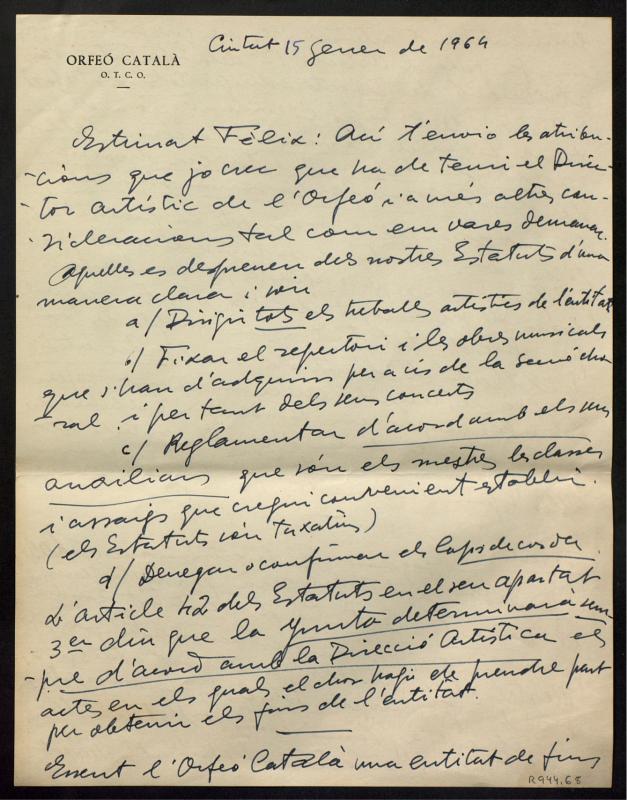 ORFEÓ CATALÀ
O. T. C. O.
Ciutat 15 gener de 1964
Estimat Fèlix: Ací t'envio les atribu-
-cions que jo crec que ha de tenir el Direc-
-tor artístic de l'Orfeó i a més altres con-
-sideracions tal com em vares demanar.
Aquelles es desprenen dels nostres Estatuts d'una
manera clara i són
a/ Dirigir tots els treballs artístics de l'entitat
b/ Fixar el repertori i les obres musicals
que s'han d'adquirir per a ús de la secció cho-
ral i per tant dels seus concerts
c/ Reglamentar d'acord amb els seus
auxiliars que són els mestres les classes
i assaigs que cregui convenient establir.
(els Estatuts són taxatius)
d/ Denegar o confirmar els caps de corda.
L'article 42 dels Estatuts en el seu apartat
3er diu que la Junta determinarà sem
-pre d'acord amb la Direcció Artística els
actes en els quals el chor hagi de prendre part
per obtenir els fins de l'entitat.
Essent l'Orfeó Català una entitat de fins
R944.68